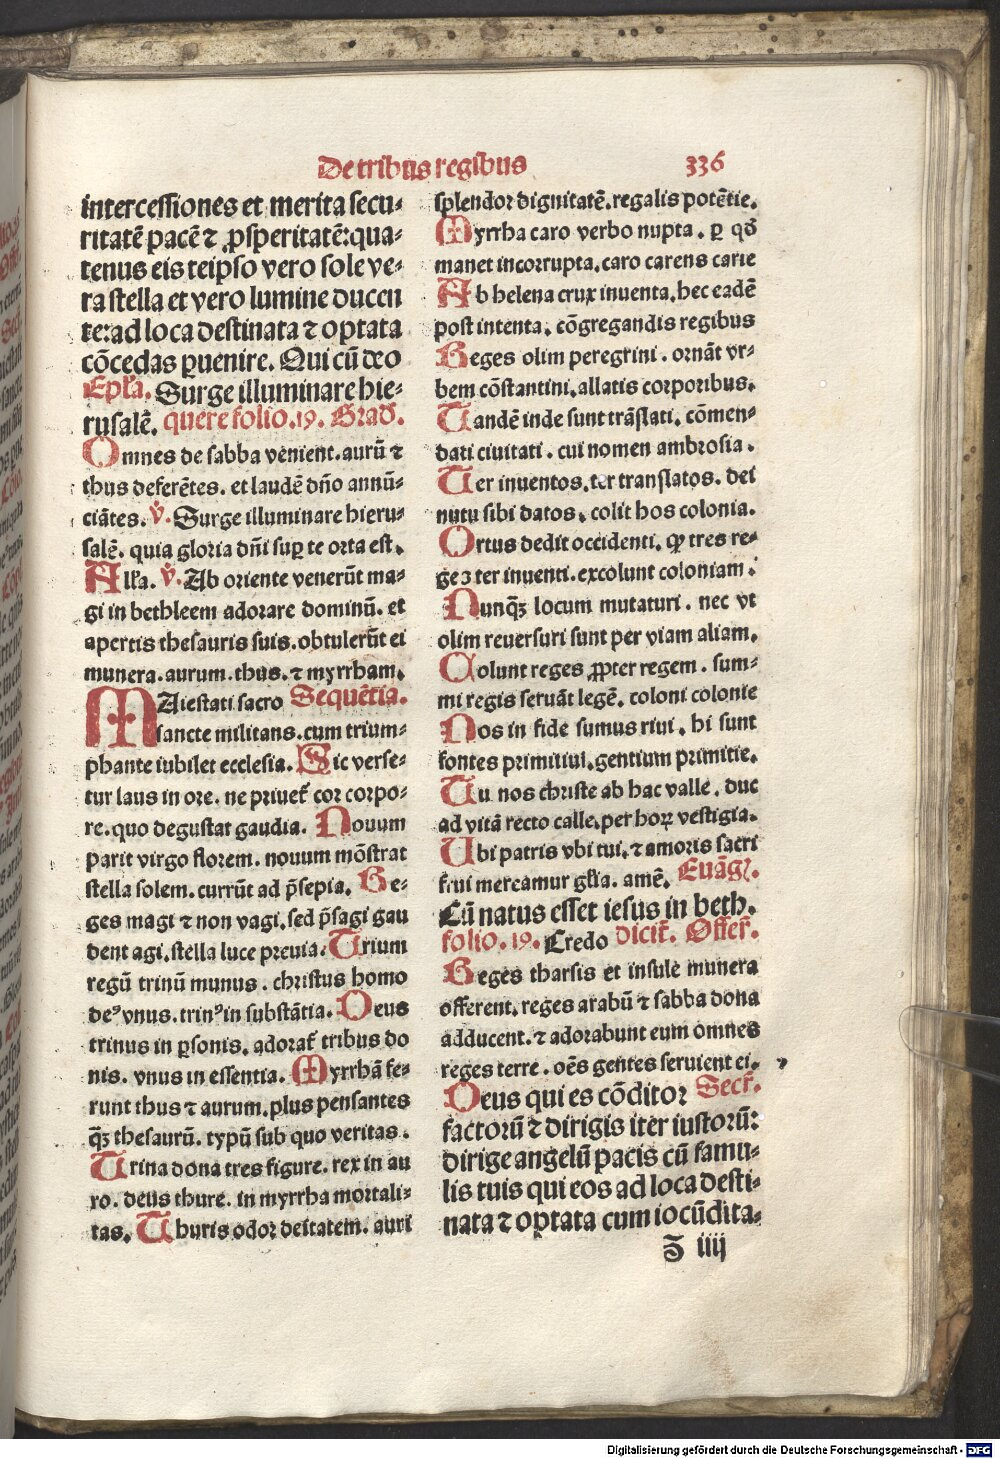 De tribus regibus 336
intercessiones et merita secu-
ritatē pacē ⁊ ꝓsperitatē: qua-
tenus eis teipso vero sole ve-
ra stella et vero lumine ducen
te: ad loca destinata ⁊ optata
cōcedas ꝑuenire. Qui cū deo
Epl'a. Surge illuminare hie-
rusalē. quere folio. 19. Grad'.
Omnes de sabba venient. aurū ⁊
thus deferētes. et laudē dn̄o annū-
ciātes. v̇. Surge illuminare hieru-
salē. quia gloria dn̄i suꝑ te orta est.
All'a. v̇. Ab oriente venerūt ma-
gi in bethleem adorare dominū. et
apertis thesauris suis. obtulerūt ei
munera. aurum. thus. ⁊ myrrham.
MAiestati sacro Sequētia.
sancte militans. cum trium-
phante iubilet ecclesia. Sic verse-
tur laus in ore. ne priuet᷑ cor corpo-
re. quo degustat gaudia. Nouum
parit virgo florem. nouum mōstrat
stella solem. currūt ad p̄sepia. Re-
ges magi ⁊ non vagi. sed p̄sagi gau
dent agi. stella luce preuia. Trium
regū trinū munus. christus homo
deꝰ vnus. trinꝰ in substātia. Deus
trinus in ꝑsonis. adorat᷑ tribus do
nis. vnus in essentia. Myrrhā fe-
runt thus ⁊ aurum. plus pensantes
qꝫ thesaurū. typū sub quo veritas.
Trina dona tres figure. rex in au
ro. deus thure. in myrrha mortali-
tas. Thuris odor deitatem. auri
splendor dignitatē. regalis potētie.
Myrrha caro verbo nupta. ꝑ qd'
manet incorrupta. caro carens carie
Ab helena crux inuenta. hec eadē
post intenta. cōgregandis regibus
Reges olim peregrini. ornāt vr-
bem cōstantini. allatis corporibus.
Tandē inde sunt trāslati. cōmen-
dati ciuitati. cui nomen ambrosia.
Ter inuentos. ter translatos. dei
nutu sibi datos. colit hos colonia.
Ortus dedit occidenti. ꝙ tres re-
ges ter inuenti. excolunt coloniam.
Nunqꝫ locum mutaturi. nec vt
olim reuersuri sunt per viam aliam.
Colunt reges ꝓpter regem. sum-
mi regis seruāt legē. coloni colonie
Nos in fide sumus riui. hi sunt
fontes primitiui. gentium primitie.
Tu nos christe ab hac valle. duc
ad vitā recto calle. per hoꝝ vestigia.
Ubi patris vbi tui. ⁊ amoris sacri
frui mereamur gl'ia. amē. Euāgꝭ.
Cū natus esset iesus in beth.
folio. 19. Credo dicit᷑. Offer᷑.
Reges tharsis et insule munera
offerent. reges arabū ⁊ sabba dona
adducent. ⁊ adorabunt eum omnes
reges terre. oēs gentes seruient ei.
Deus qui es cōditor Secr᷑.
factorū ⁊ dirigis iter iustorū:
dirige angelū pacis cū famu-
lis tuis qui eos ad loca desti-
nata ⁊ optata cum iocūdita-
iiij
Digitalisierung gefördert durch die Deutsche Forschungsgemeinschaft - DFG